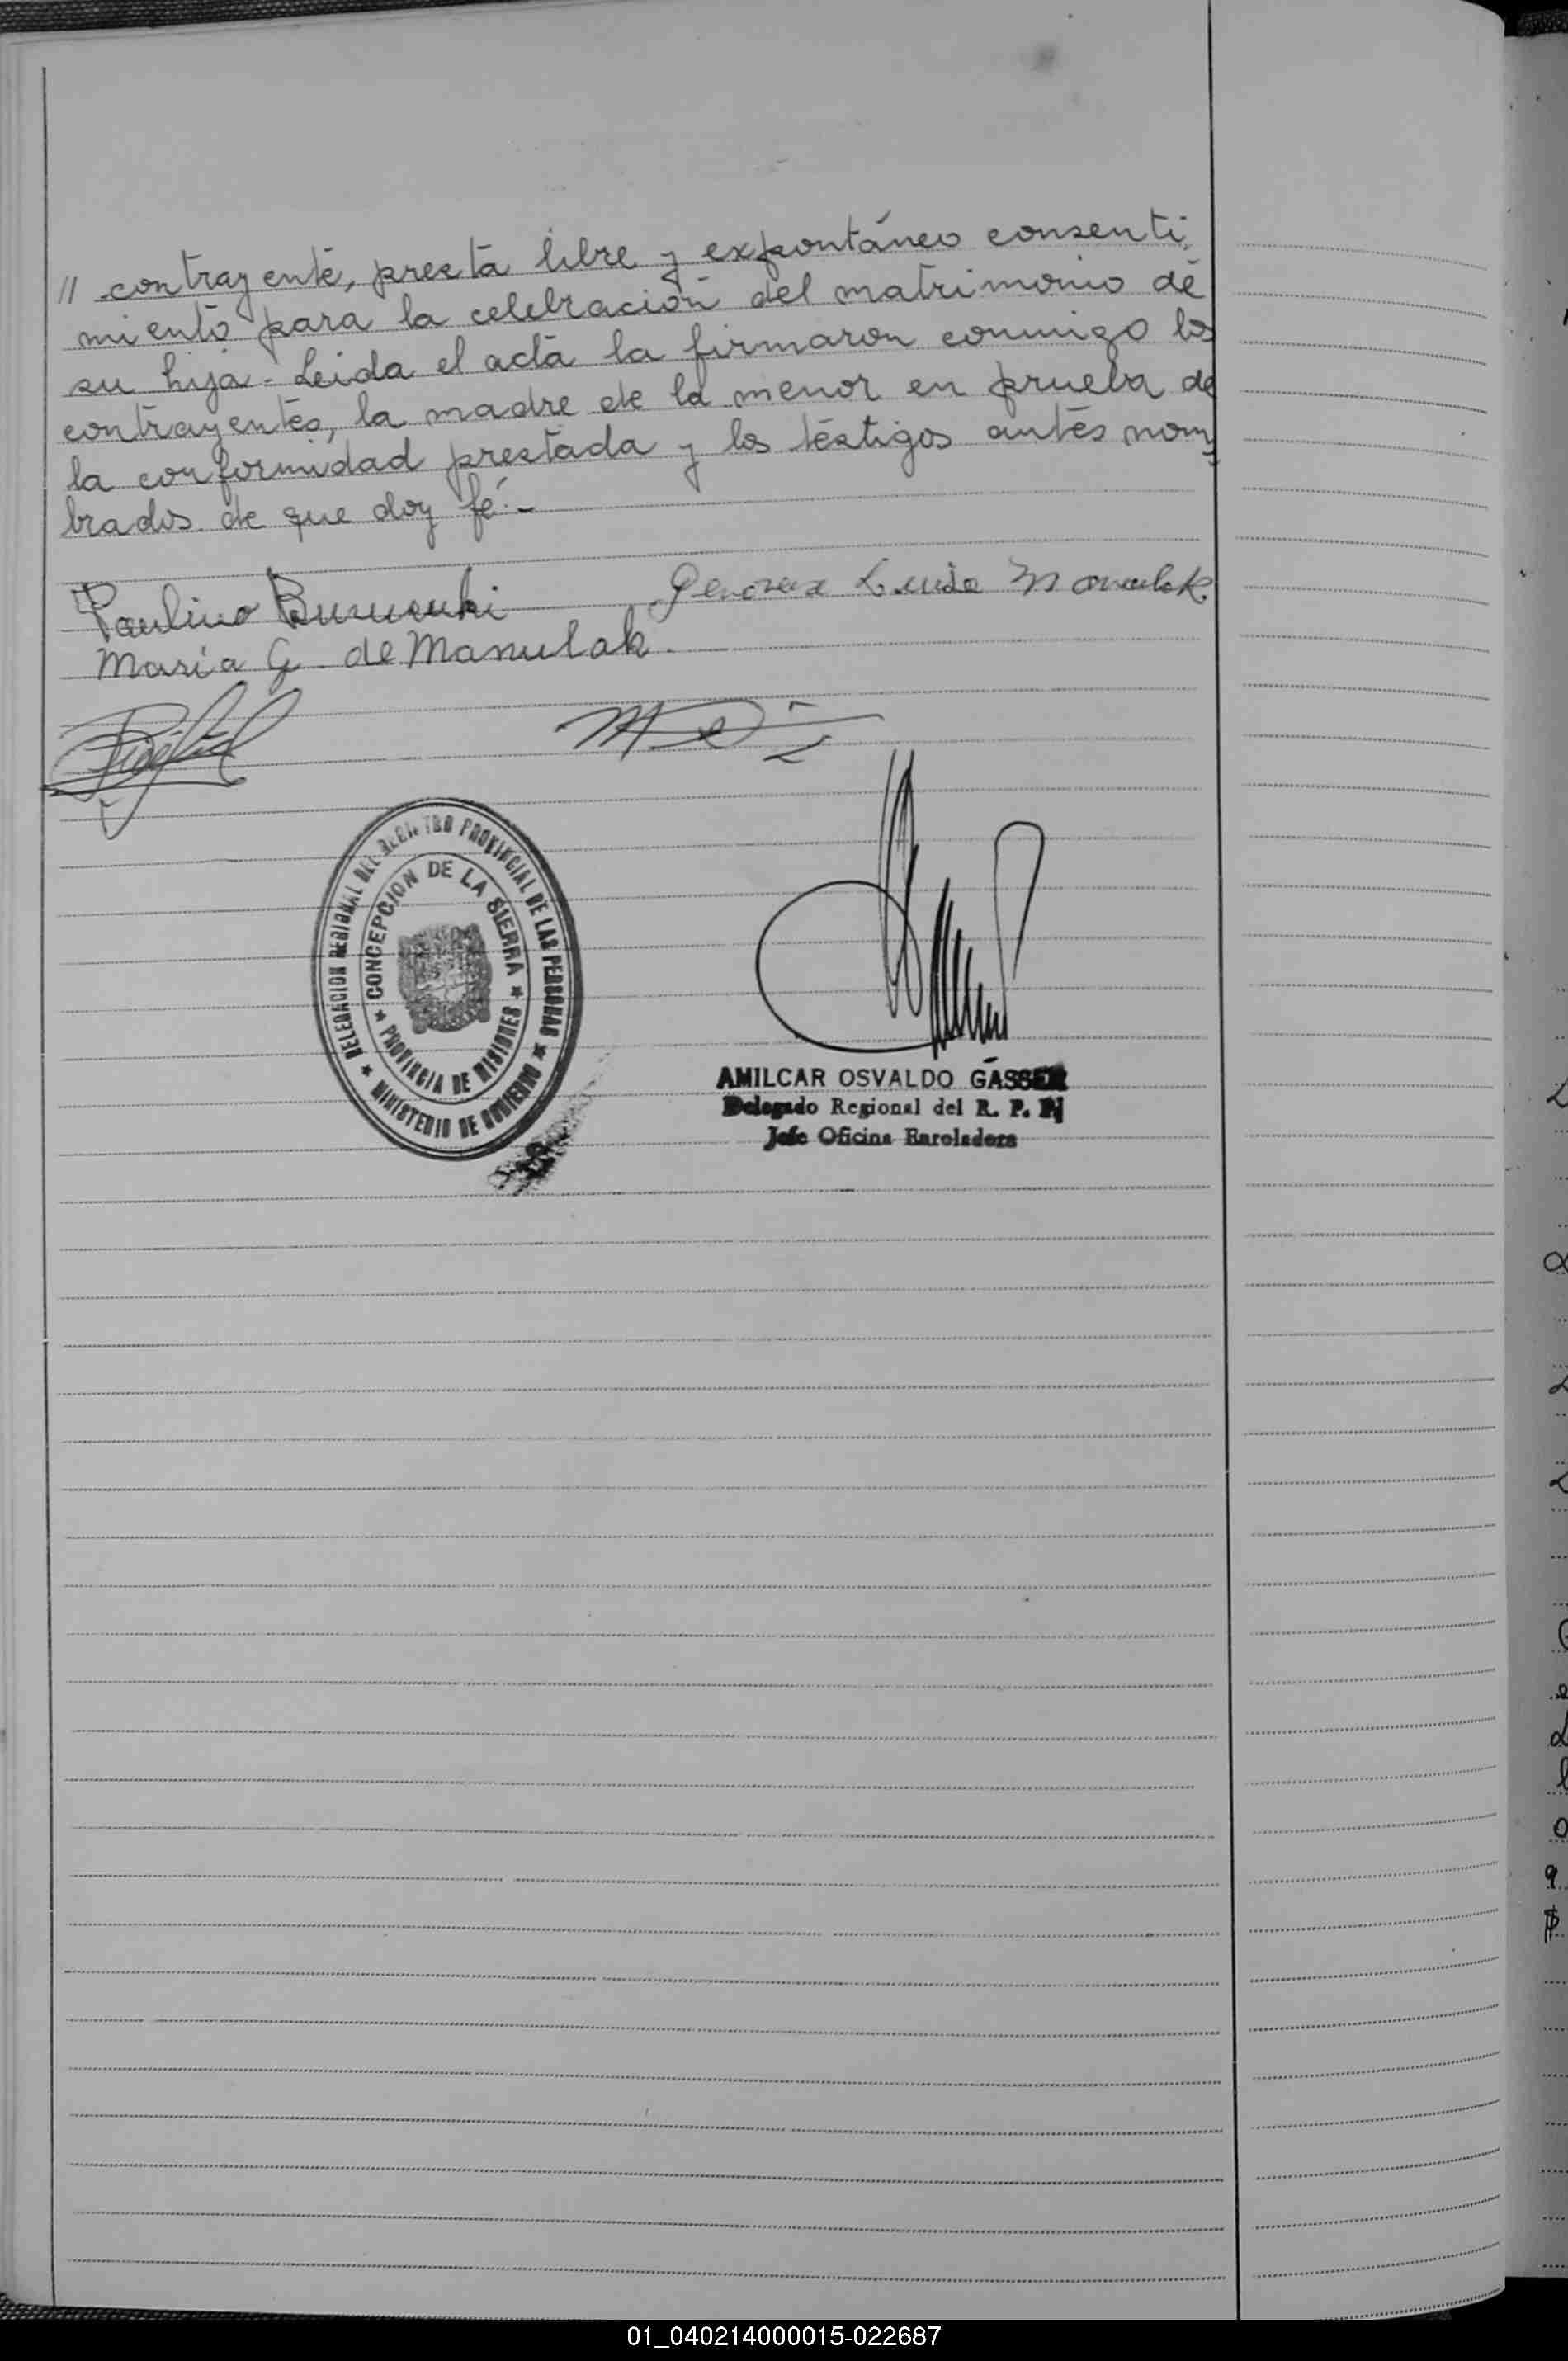 // contrayente, presta libre y expontáneo consenti,
miento para la celebración del matrimonio de
su hija.- Leida el acta la firmaron conmigo los
contrayentes, la madre de la menor en prueba de
la conformidad prestada y los testigos antes nom,
brados de que doy fé.-
Paulino Genoveva Luisa Manulak
Maria G. de Manulak.
DELEGACION REGIONAL DEL REGISTRO PROVINCIAL DE LAS PERSONAS ★ MINISTERIO DE GOBIERNO ★
CONCEPCION DE LA SIERRA ★ PROVINCIA DE MISIONES ★
AMILCAR OSVALDO GASSER
Delegado Regional del R. P. P.
Jefe Oficina Enroladora
01_040214000015-022687